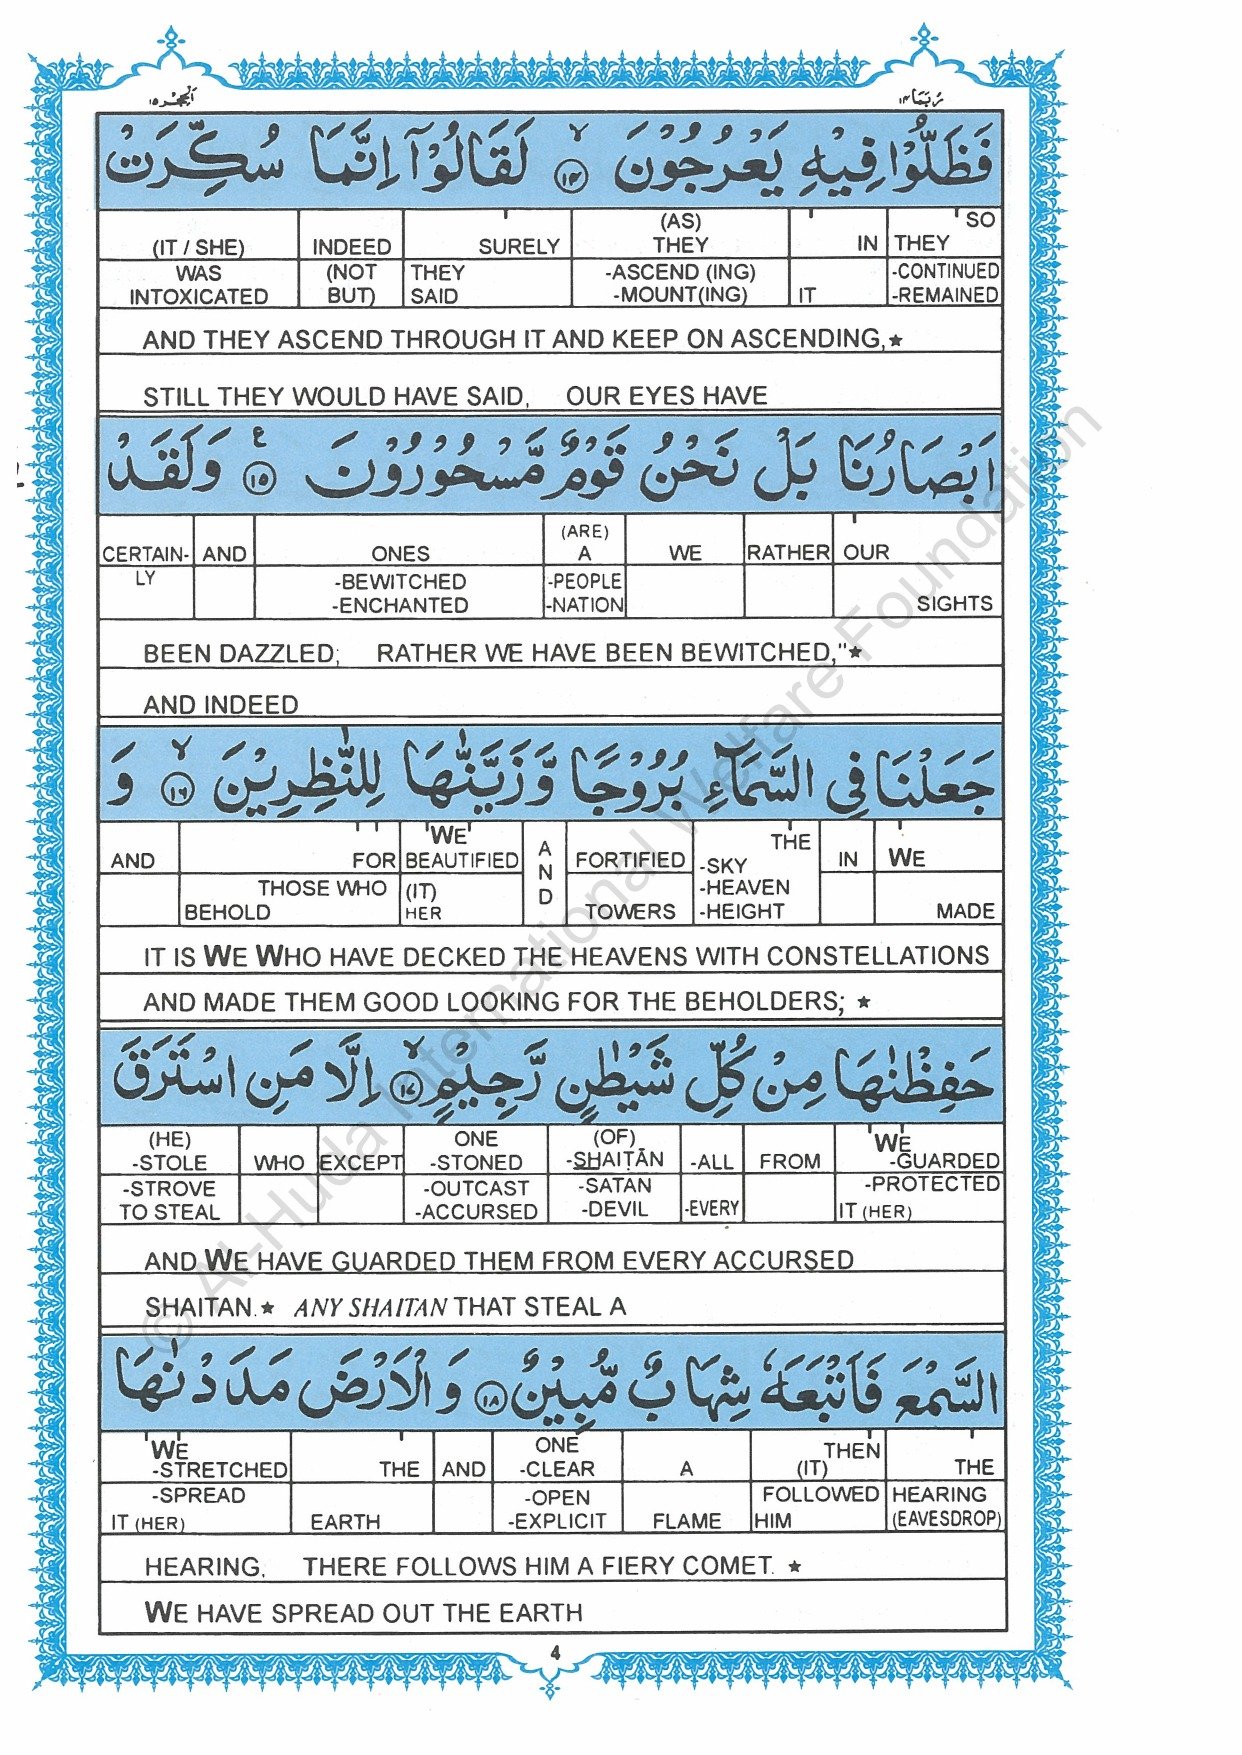 رُبَمَا ١٤ اَلْحِجْر ١٥
فَظَلُّوْا فِيْهِ يَعْرُجُوْنَ ۙ‏ ١٤ لَقَالُوْۤا اِنَّمَا سُكِّرَتْ
(IT / SHE) INDEED SURELY (AS) THEY IN SO THEY
WAS INTOXICATED (NOT BUT) THEY SAID -ASCEND (ING) -MOUNT(ING) IT -CONTINUED -REMAINED
AND THEY ASCEND THROUGH IT AND KEEP ON ASCENDING,★
STILL THEY WOULD HAVE SAID, OUR EYES HAVE
اَبْصَارُنَا بَلْ نَحْنُ قَوْمٌ مَّسْحُوْرُوْنَ ١٥ ع وَلَقَدْ
CERTAIN- AND ONES (ARE) A WE RATHER OUR
LY -BEWITCHED -ENCHANTED -PEOPLE -NATION SIGHTS
BEEN DAZZLED; RATHER WE HAVE BEEN BEWITCHED,"★
AND INDEED
جَعَلْنَا فِى السَّمَآءِ بُرُوْجًا وَّ زَيَّنّٰهَا لِلنّٰظِرِيْنَ ۙ‏ ١٦ وَ
AND FOR 'WE' BEAUTIFIED AND FORTIFIED THE -SKY -HEAVEN -HEIGHT IN WE
THOSE WHO BEHOLD (IT) HER TOWERS MADE
IT IS WE WHO HAVE DECKED THE HEAVENS WITH CONSTELLATIONS
AND MADE THEM GOOD LOOKING FOR THE BEHOLDERS; ★
حَفِظْنٰهَا مِنْ كُلِّ شَيْطٰنٍ رَّجِيْمٍ ۙ‏ ١٧ اِلَّا مَنِ اسْتَرَقَ
(HE) -STOLE WHO EXCEPT ONE -STONED (OF) -SHAIṬĀN -ALL FROM 'WE' -GUARDED
-STROVE TO STEAL -OUTCAST -ACCURSED -SATAN -DEVIL -EVERY -PROTECTED IT (HER)
AND WE HAVE GUARDED THEM FROM EVERY ACCURSED
SHAITAN.★ ANY SHAITAN THAT STEAL A
السَّمْعَ فَاَتْبَعَهٗ شِهَابٌ مُّبِيْنٌ ١٨ وَالْاَرْضَ مَدَدْنٰهَا
'WE' -STRETCHED THE AND ONE -CLEAR A THEN (IT) THE
-SPREAD IT (HER) EARTH -OPEN -EXPLICIT FLAME FOLLOWED HIM HEARING (EAVESDROP)
HEARING, THERE FOLLOWS HIM A FIERY COMET. ★
WE HAVE SPREAD OUT THE EARTH
4
© Al-Huda International Welfare Foundation